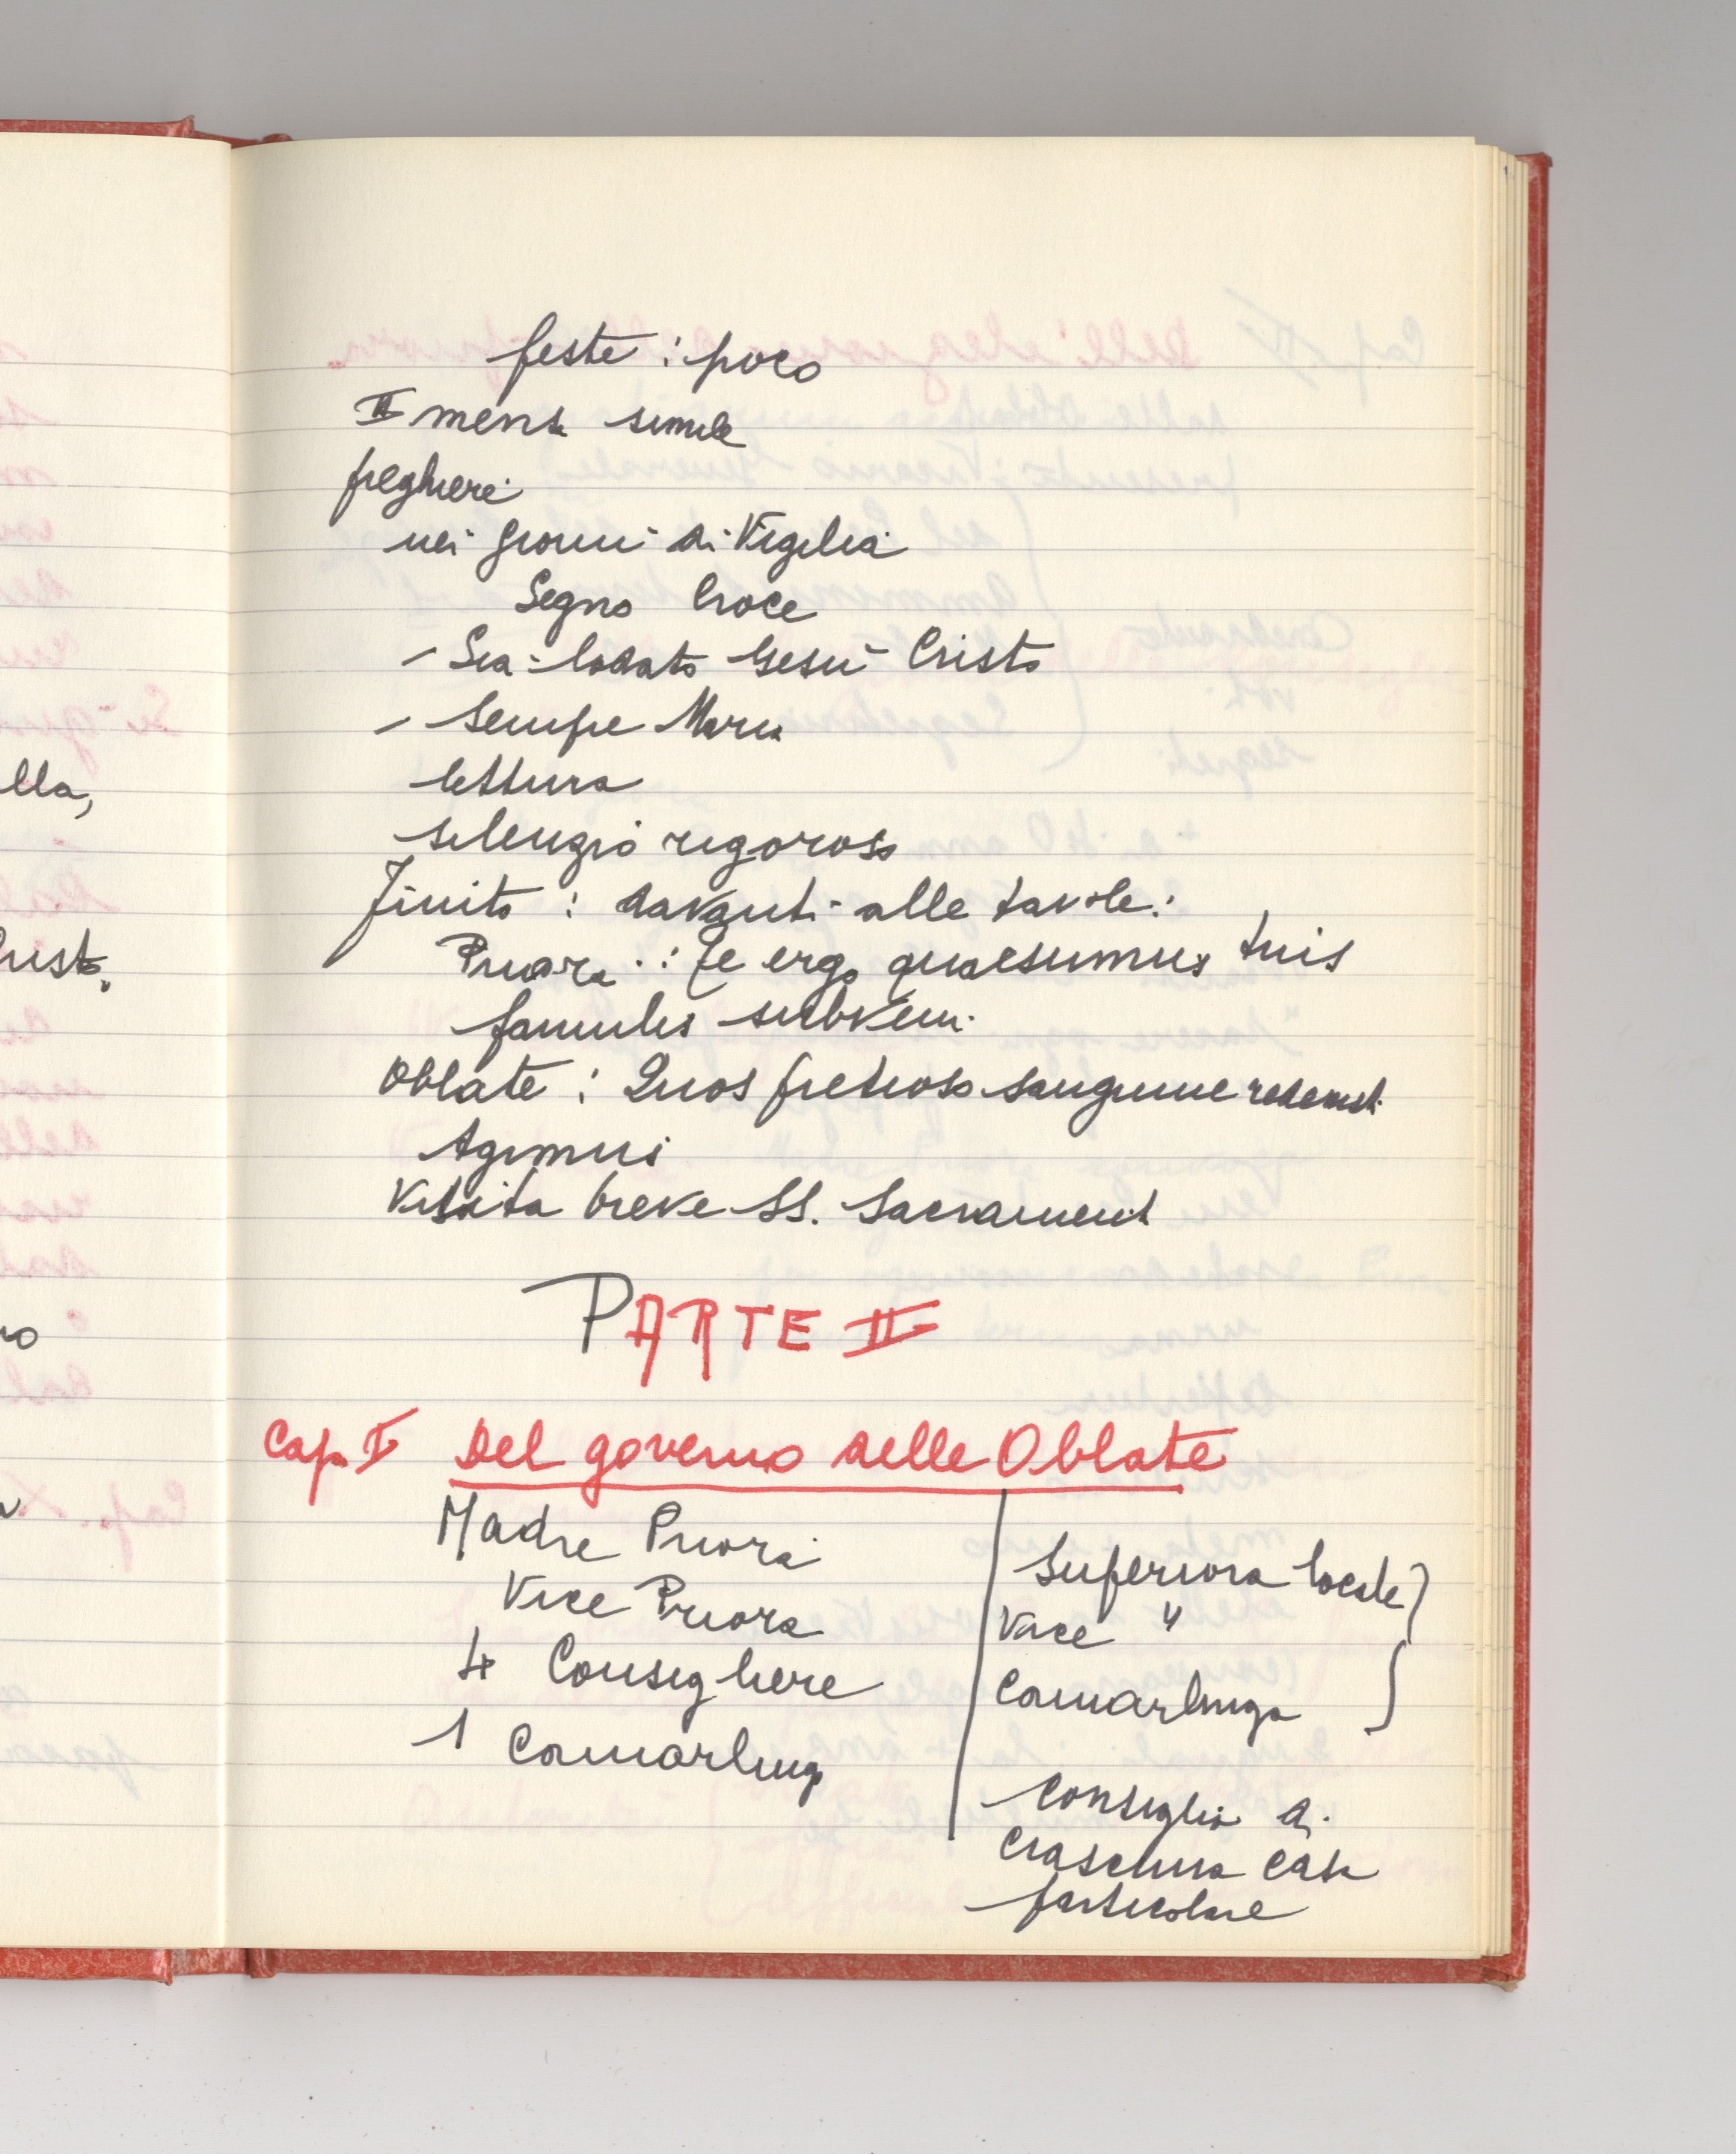 lla,
feste : poco
II mensa simile
preghiere
nei giorni di Vigilia
Segno Croce
- Sia lodato Gesù Cristo
- Sempre Maria
lettura
silenzio rigoroso
Finito : davanti alle tavole :
Priora : Te ergo quaesumus tuis
famulis subveni
Oblate : Quos pretioso sanguine redemisti
Agimus
Visita breve SS. Sacramento
PARTE II
Cap. I Del governo delle Oblate
Madre Priora
Vice Priora
4 Consigliere
1 Camarlinga
Superiora locale
Vice "
Camarlinga
Consiglio di
Ciascuna Casa
particolare